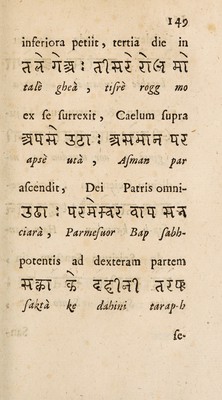 149
inferiora petiit, tertia die in
तले गेअ : तीसरे रोज मो
talè gheà , tisrè rogg mo
ex se surrexit, Caelum supra
अपसे उठा : असमान पर
apsè utà , Asman par
ascendit, Dei Patris omni-
उठा : परमेस्वर बाप सब
ciarà , Parmesuor Bap sabh-
potentis ad dexteram partem
सका के दहीनी तरफ
saktà ke dahini tarap-h
se-